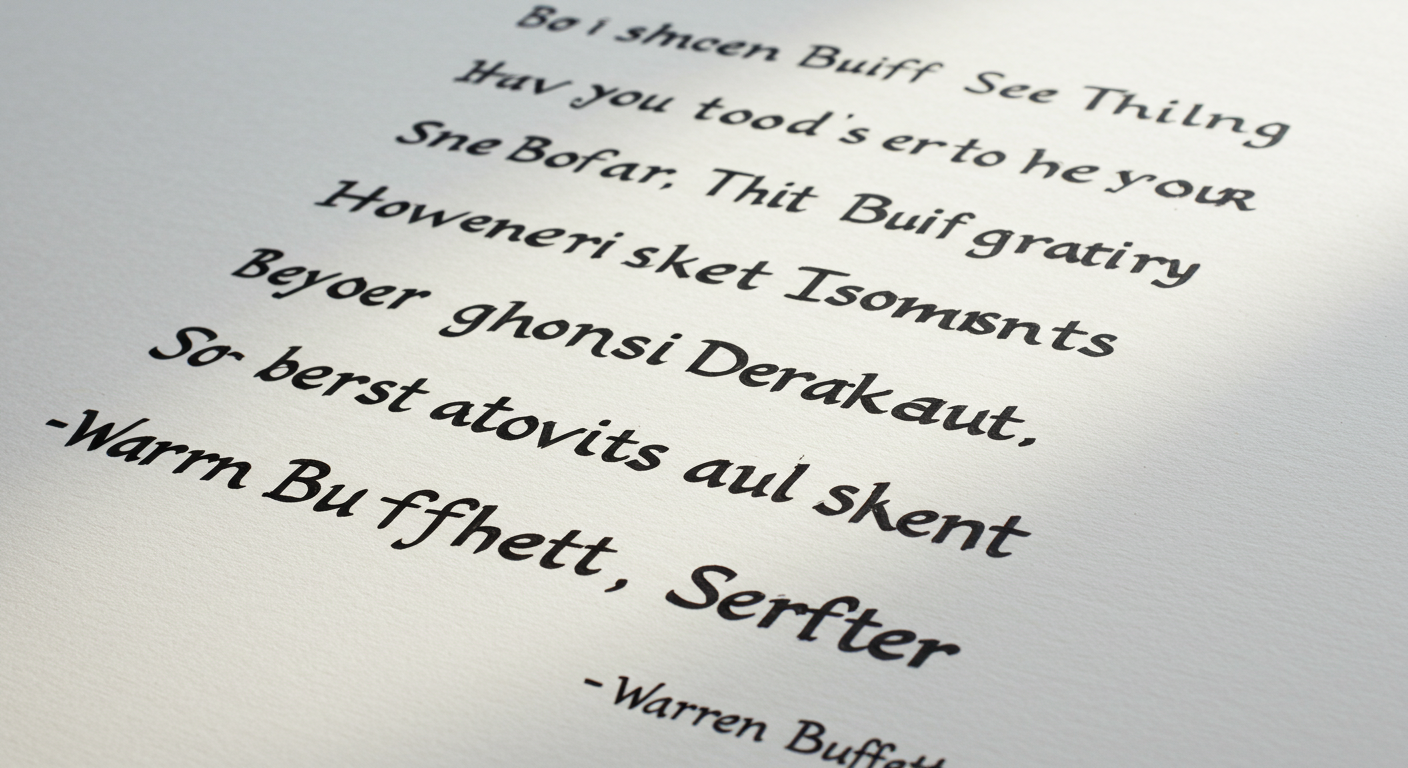 Bo i shncen Buiff See Thilng
Hav you tood's erto he your
Sne Bofar; Thit Buif gratiry
Howeneri sket Isomısnts
Beyoer ghonsi Derakaut,
So berst atovits aul skent
-Warrn Bu ffhett, Serfter
-Warren Buffett